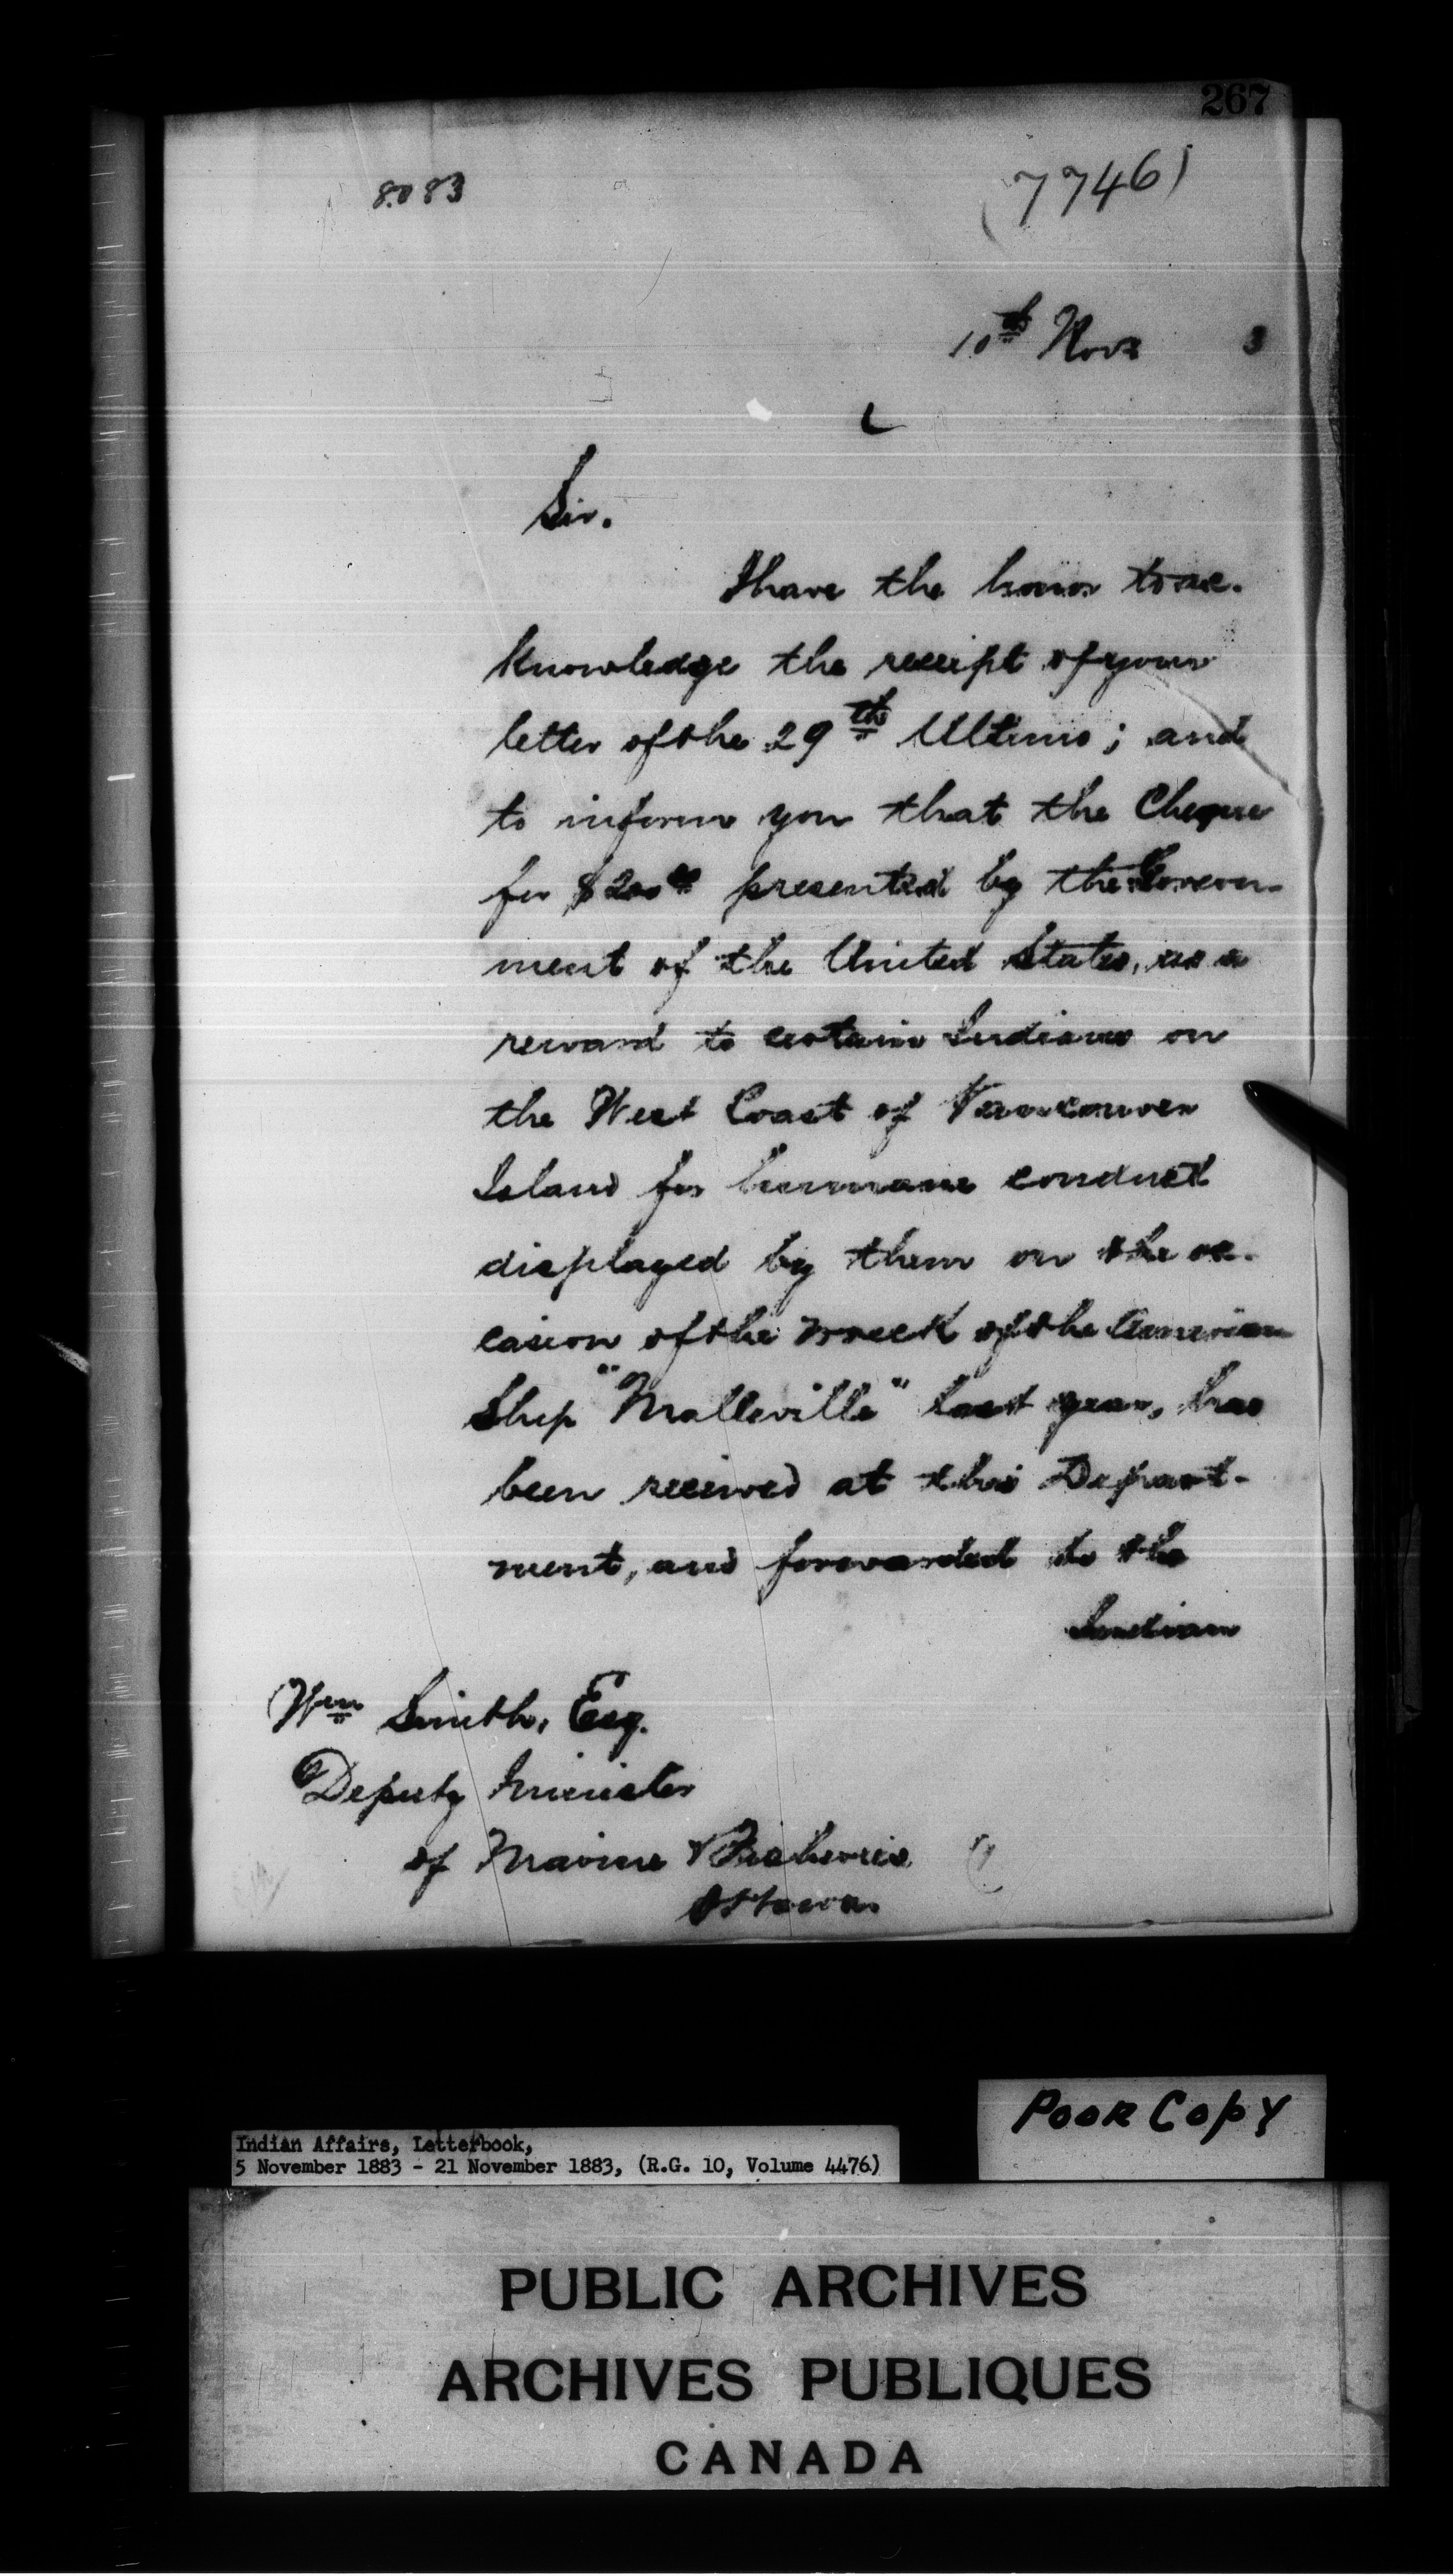 267
8083
(7746)
10th Novr 3
Sir.
I have the honor to ac-
knowledge the receipt of your
letter of the 29th Ultimo; and
to inform you that the Cheque
for $200 presented by the Govern-
ment of the United States, as a
reward to certain Indians on
the West Coast of Vancouver
Island for humane conduct
displayed by them on the oc-
casion of the wreck of the American
Ship "Malleville" last year, has
been received at this Depart-
ment, and forwarded to the
Indian
Wm Smith, Esq.
Deputy Minister
of Marine & Fisheries
Ottawa
POOR COPY
Indian Affairs, Letterbook,
5 November 1883 - 21 November 1883, (R.G. 10, Volume 4476)
PUBLIC ARCHIVES
ARCHIVES PUBLIQUES
CANADA